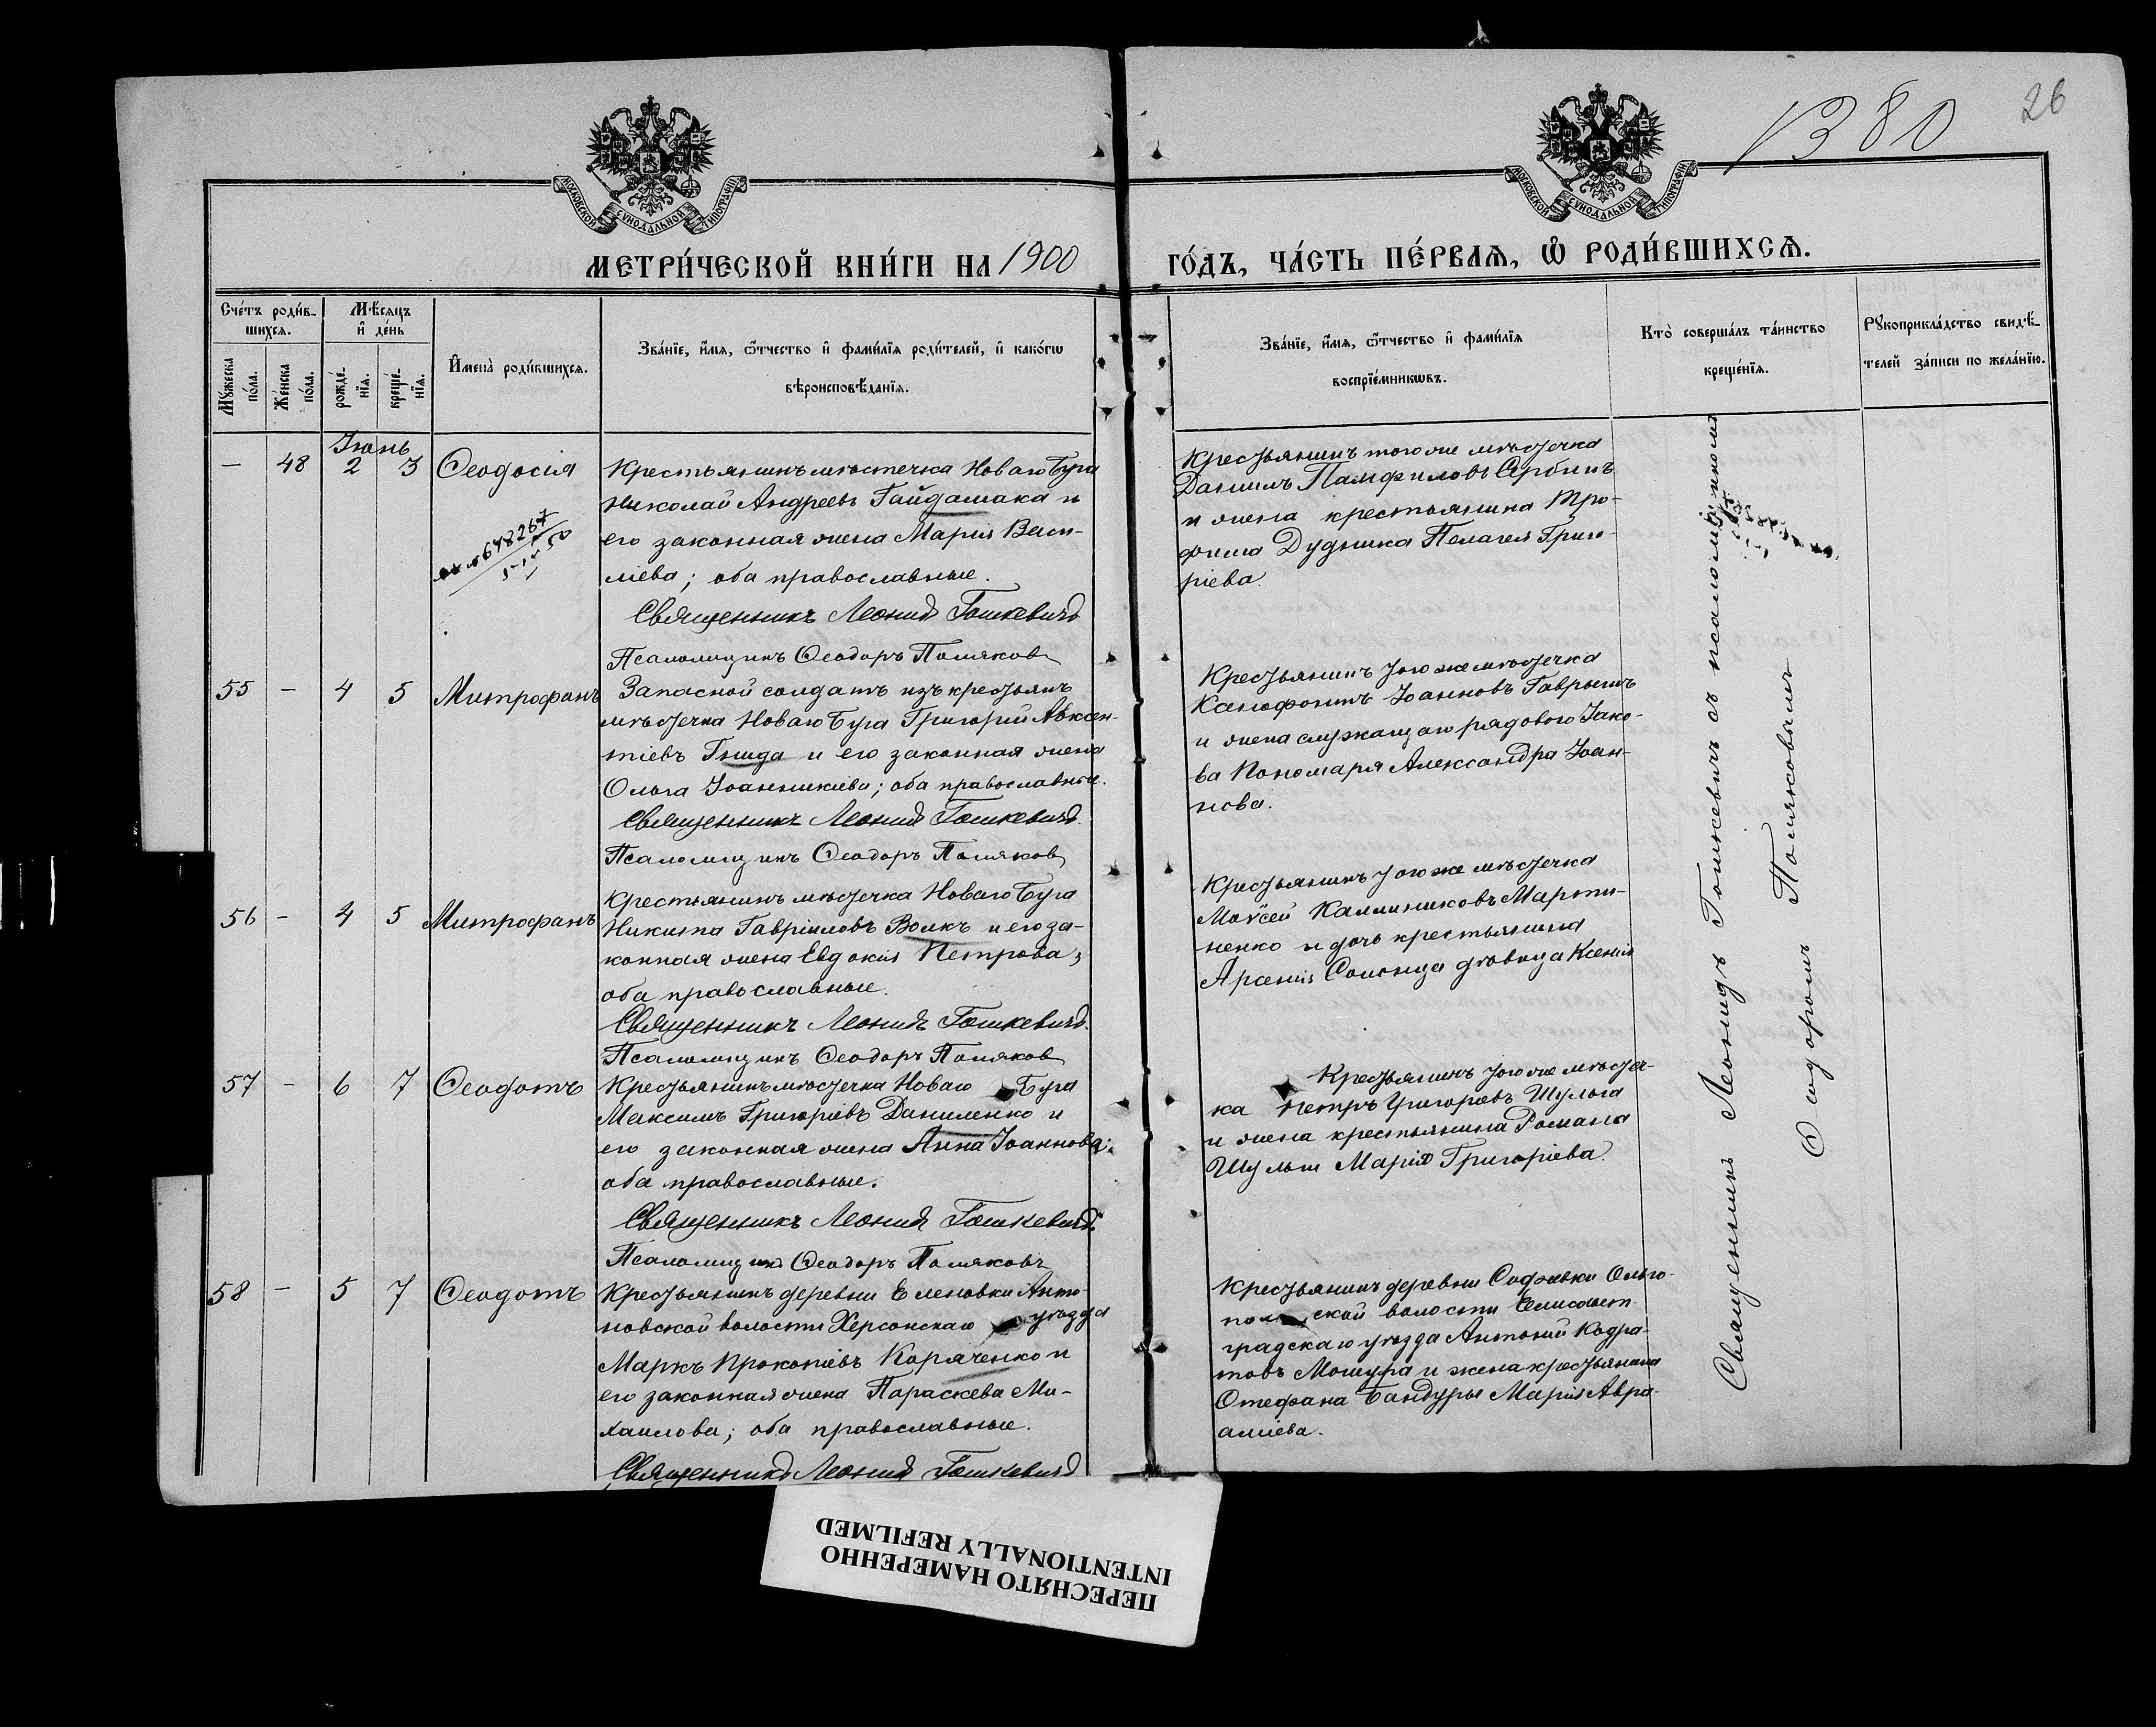 1380
26
МОСКОВСКОЙ СѴНОДАЛЬНОЙ ТИПОГРАФІИ
МОСКОВСКОЙ СѴНОДАЛЬНОЙ ТИПОГРАФІИ
МЕТРИ́ЧЕСКОЙ КНИ́ГИ НА 1900 ГО́ДЪ, ЧА́СТЬ ПЕ́РВАѦ, Ѽ РОДИ́ВШИХСѦ.
Сче́тъ роди́в-
шихсѧ.
Мѣ́сѧцъ
и҆ де́нь
Мꙋ́жеска
по́ла.
Же́нска
по́ла.
рожде́-
нїѧ.
креще́-
нїѧ.
И҆мена̀ роди́вшихсѧ.
Зва́нїе, и҆́мѧ, ѻ҆́тчество и҆ фами́лїѧ роди́телей, и҆ како́гѡ
вѣроисповѣ́данїѧ.
Зва́нїе, и҆́мѧ, ѻ҆́тчество и҆ фами́лїѧ
воспрїе́мникѡвъ.
Кто̀ соверша́лъ та́инство
креще́нїѧ.
Рꙋкоприкла́дство свидѣ́-
телей за́писи по жела́нїю.
Іюнь
— 48 2 3 Ѳеодосія
Крестьянинъ мѣстечка Новаго Буга
Николай Андреевъ Гайдамака и
его законная жена Марія Васи-
ліева; оба православные.
Священникъ Леонидъ Гошкевичъ
Псаломщикъ Ѳеодоръ Поляковъ
Крестьянинъ того же мѣстечка
Даніилъ Памфиловъ Сербинъ
и жена крестьянина Тро-
фима Дудника Пелагея Григо-
ріева.
55 — 4 5 Митрофанъ
Запасной солдатъ изъ крестьянъ
мѣстечка Новаго Буга Григорій Авксен-
тіевъ Гнида и его законная жена
Ольга Іоанникіева; оба православные.
Священникъ Леонидъ Гошкевичъ
Псаломщикъ Ѳеодоръ Поляковъ
Крестьянинъ того же мѣстечка
Ксенофонтъ Іоанновъ Гаврышъ
и жена служащаго рядового Іако-
ва Пономаря Александра Іоан-
нова.
56 — 4 5 Митрофанъ
Крестьянинъ мѣстечка Новаго Буга
Никита Гавріиловъ Волкъ и его за-
конная жена Евдокія Петрова;
оба православные.
Священникъ Леонидъ Гошкевичъ.
Псаломщикъ Ѳеодоръ Поляковъ
Крестьянинъ того же мѣстечка
Моѵсей Каллиниковъ Марты-
ненко и дочь крестьянина
Арсенія Солонца дѣвица Ксенія
57 — 6 7 Ѳеодотъ
Крестьянинъ мѣстечка Новаго Буга
Максимъ Григоріевъ Даниленко и
его законная жена Анна Іоаннова;
оба православные.
Священникъ Леонидъ Гошкевичъ
Псаломщикъ Ѳеодоръ Поляковъ
Крестьянинъ того же мѣстеч-
ка Петръ Григоріевъ Шульга
и жена крестьянина Романа
Шульги Марія Григоріева.
58 — 5 7 Ѳеодотъ
Крестьянинъ деревни Еленовки Анто-
новской волости Херсонскаго уѣзда
Маркъ Прокопіевъ Коряченко и
его законная жена Параскева Ми-
хаилова; оба православные.
Священникъ Леонидъ Гошкевичъ
Крестьянинъ деревни Софіевки Ольго-
польской волости Елисавет-
градскаго уѣзда Антоній Кодра-
товъ Мошура и жена крестьянина
Стефана Бандуры Марія Авра-
аміева.
Священникъ Леонидъ Гошкевичъ съ псаломщикомъ
Ѳеодоромъ Поляковымъ
ПЕРЕСНЯТО НАМЕРЕННО
INTENTIONALLY REFILMED